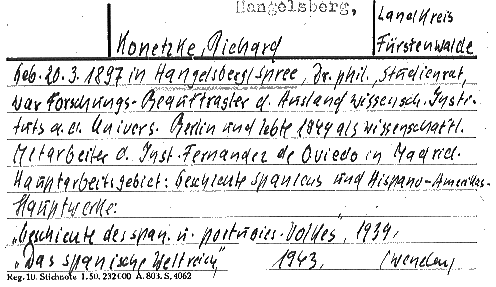 Hangelsberg,
Landkreis
Konetzke, Richard
Fürstenwalde
Geb. 20.3.1897 in Hangelsberg/Spree, Dr. phil., Studienrat,
war Forschungs-Beauftragter d. Ausland wissensch. Insti-
tuts a.d. Univers. Berlin und lebte 1944 als wissenschaftl.
Mitarbeiter d. Inst. Fernandez de Oviedo in Madrid.
Hauptarbeitsgebiet: Geschichte Spaniens und Hispano-Amerikas.
Hauptwerke:
"Geschichte des span. u. portugies. Volkes", 1939,
"Das spanische Weltreich", 1943, (wenden)
Reg. 10. Stichnote 1.50. 232000 A. 803. S. 4062